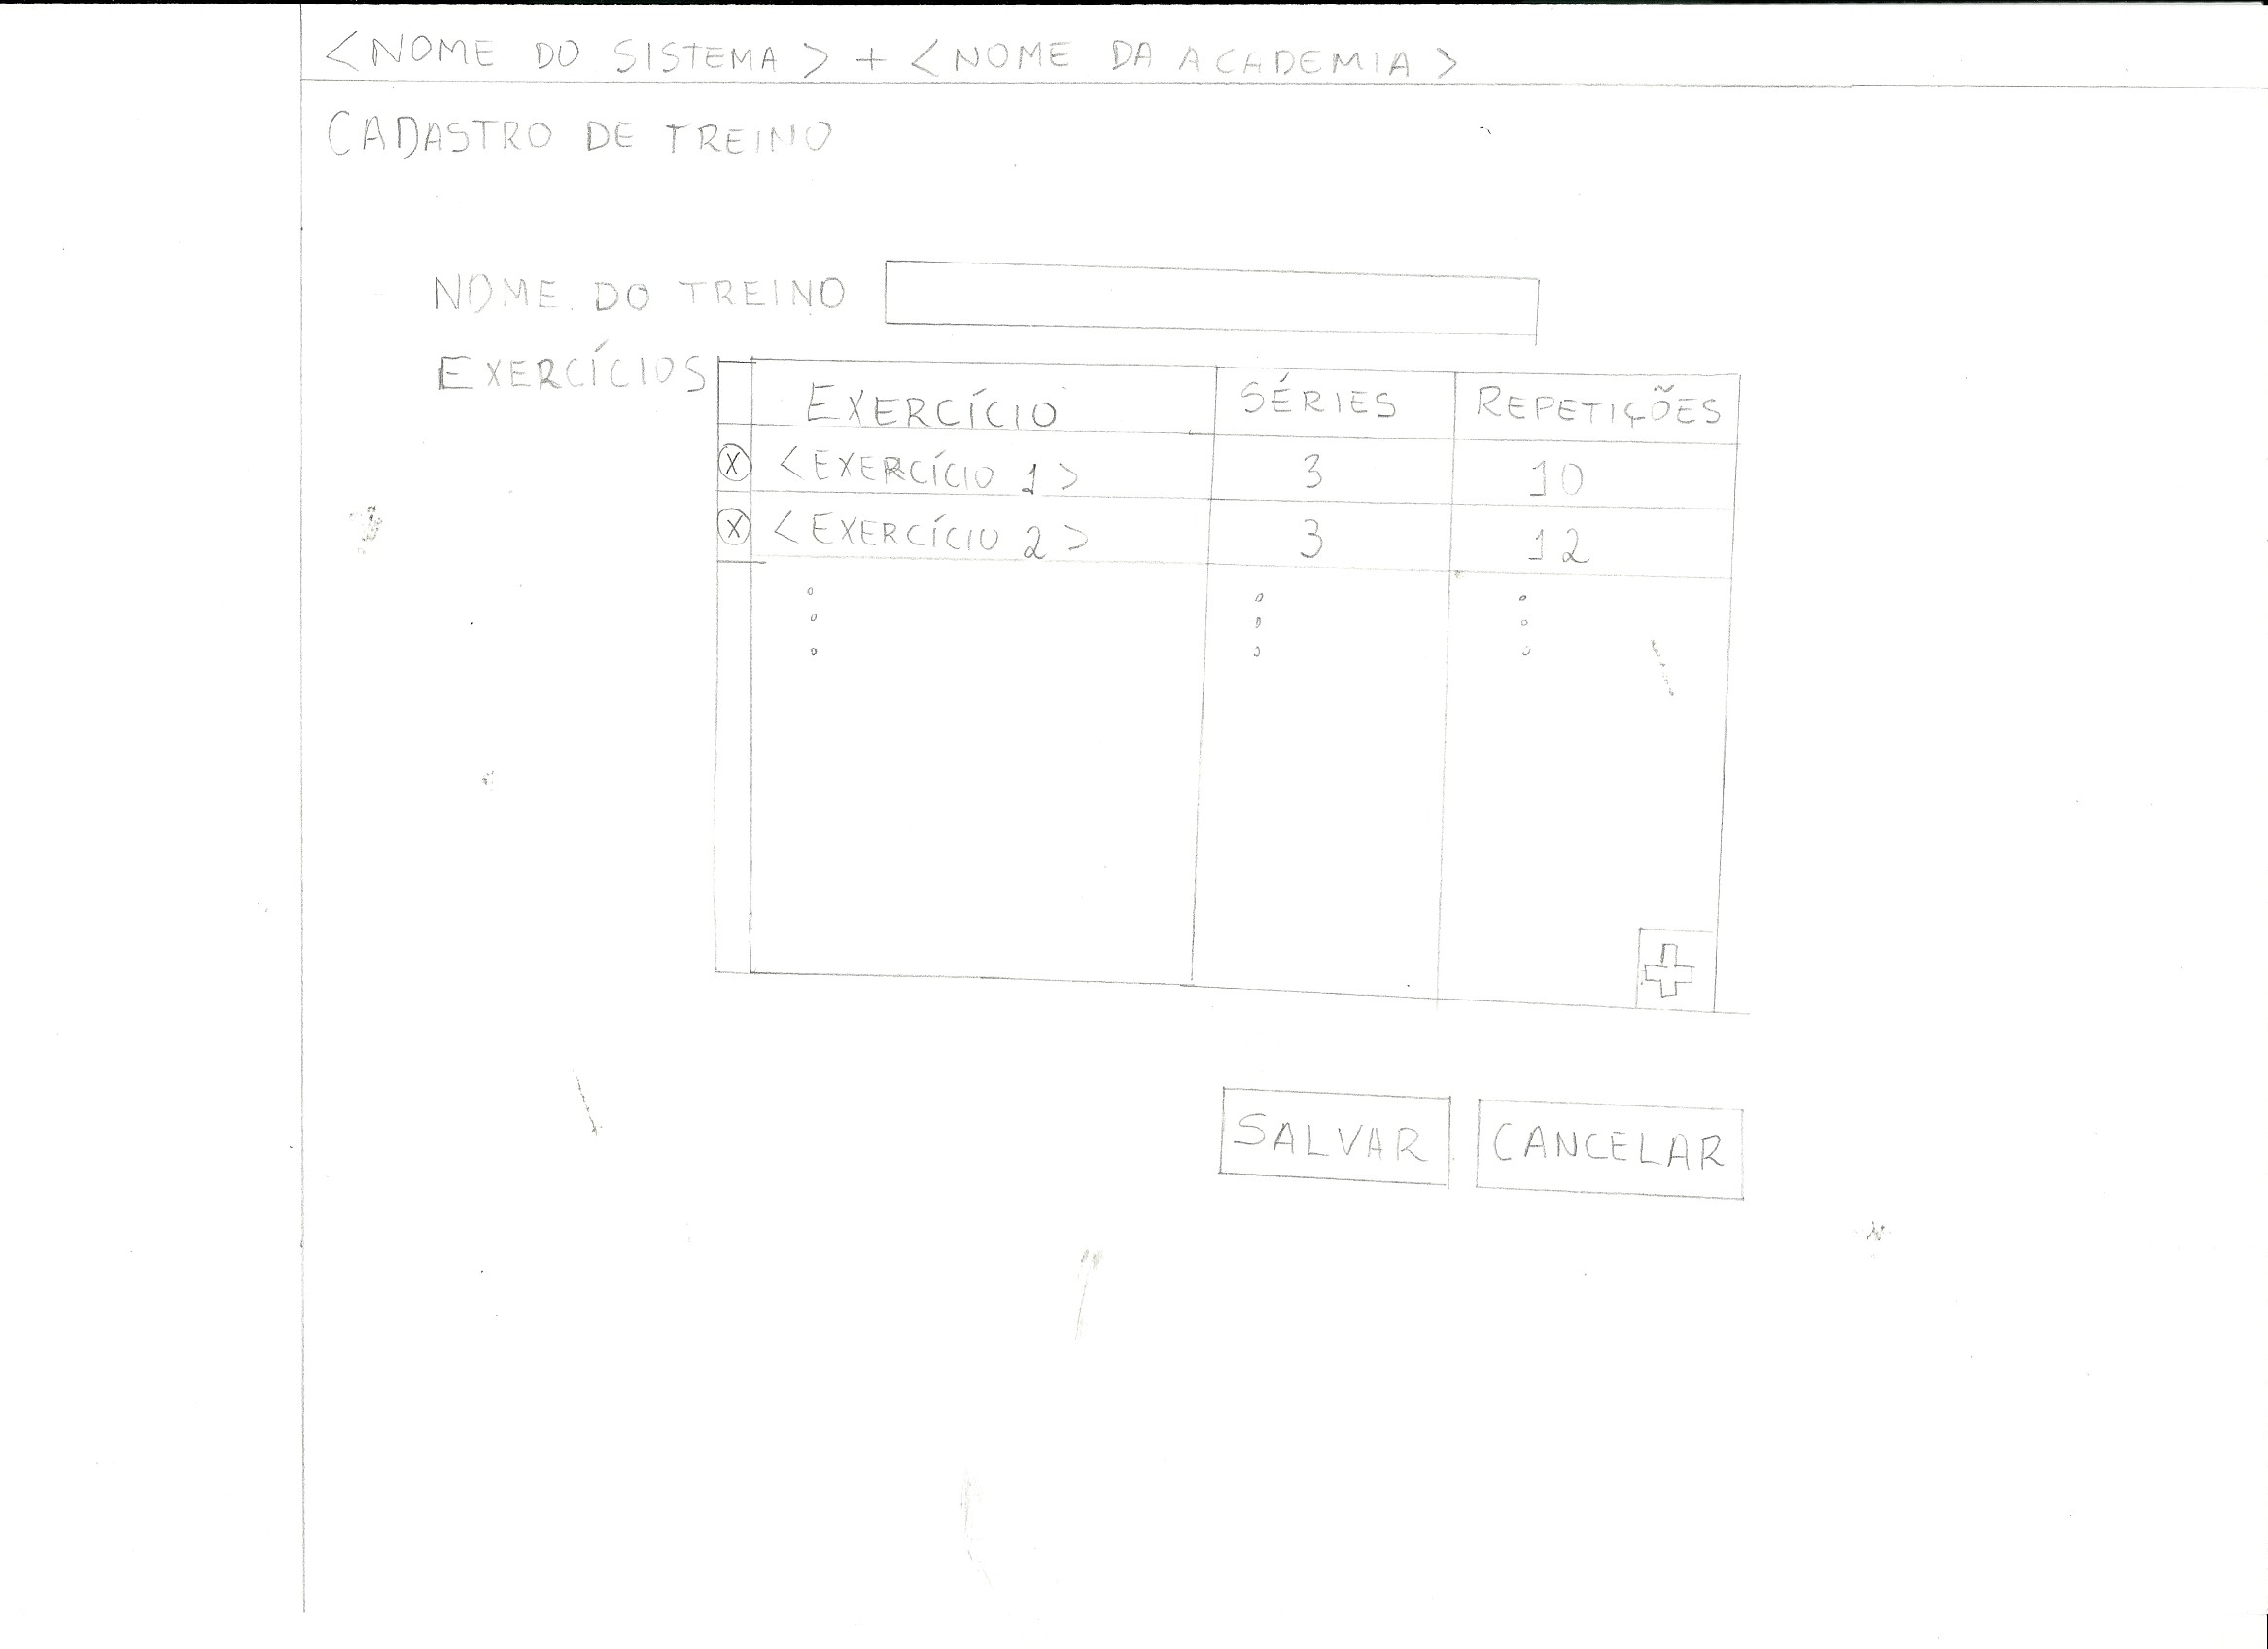 <NOME DO SISTEMA> + <NOME DA ACADEMIA>
CADASTRO DE TREINO
NOME DO TREINO
EXERCÍCIOS
EXERCÍCIO SÉRIES REPETIÇÕES
X <EXERCÍCIO 1> 3 10
X <EXERCÍCIO 2> 3 12
SALVAR CANCELAR